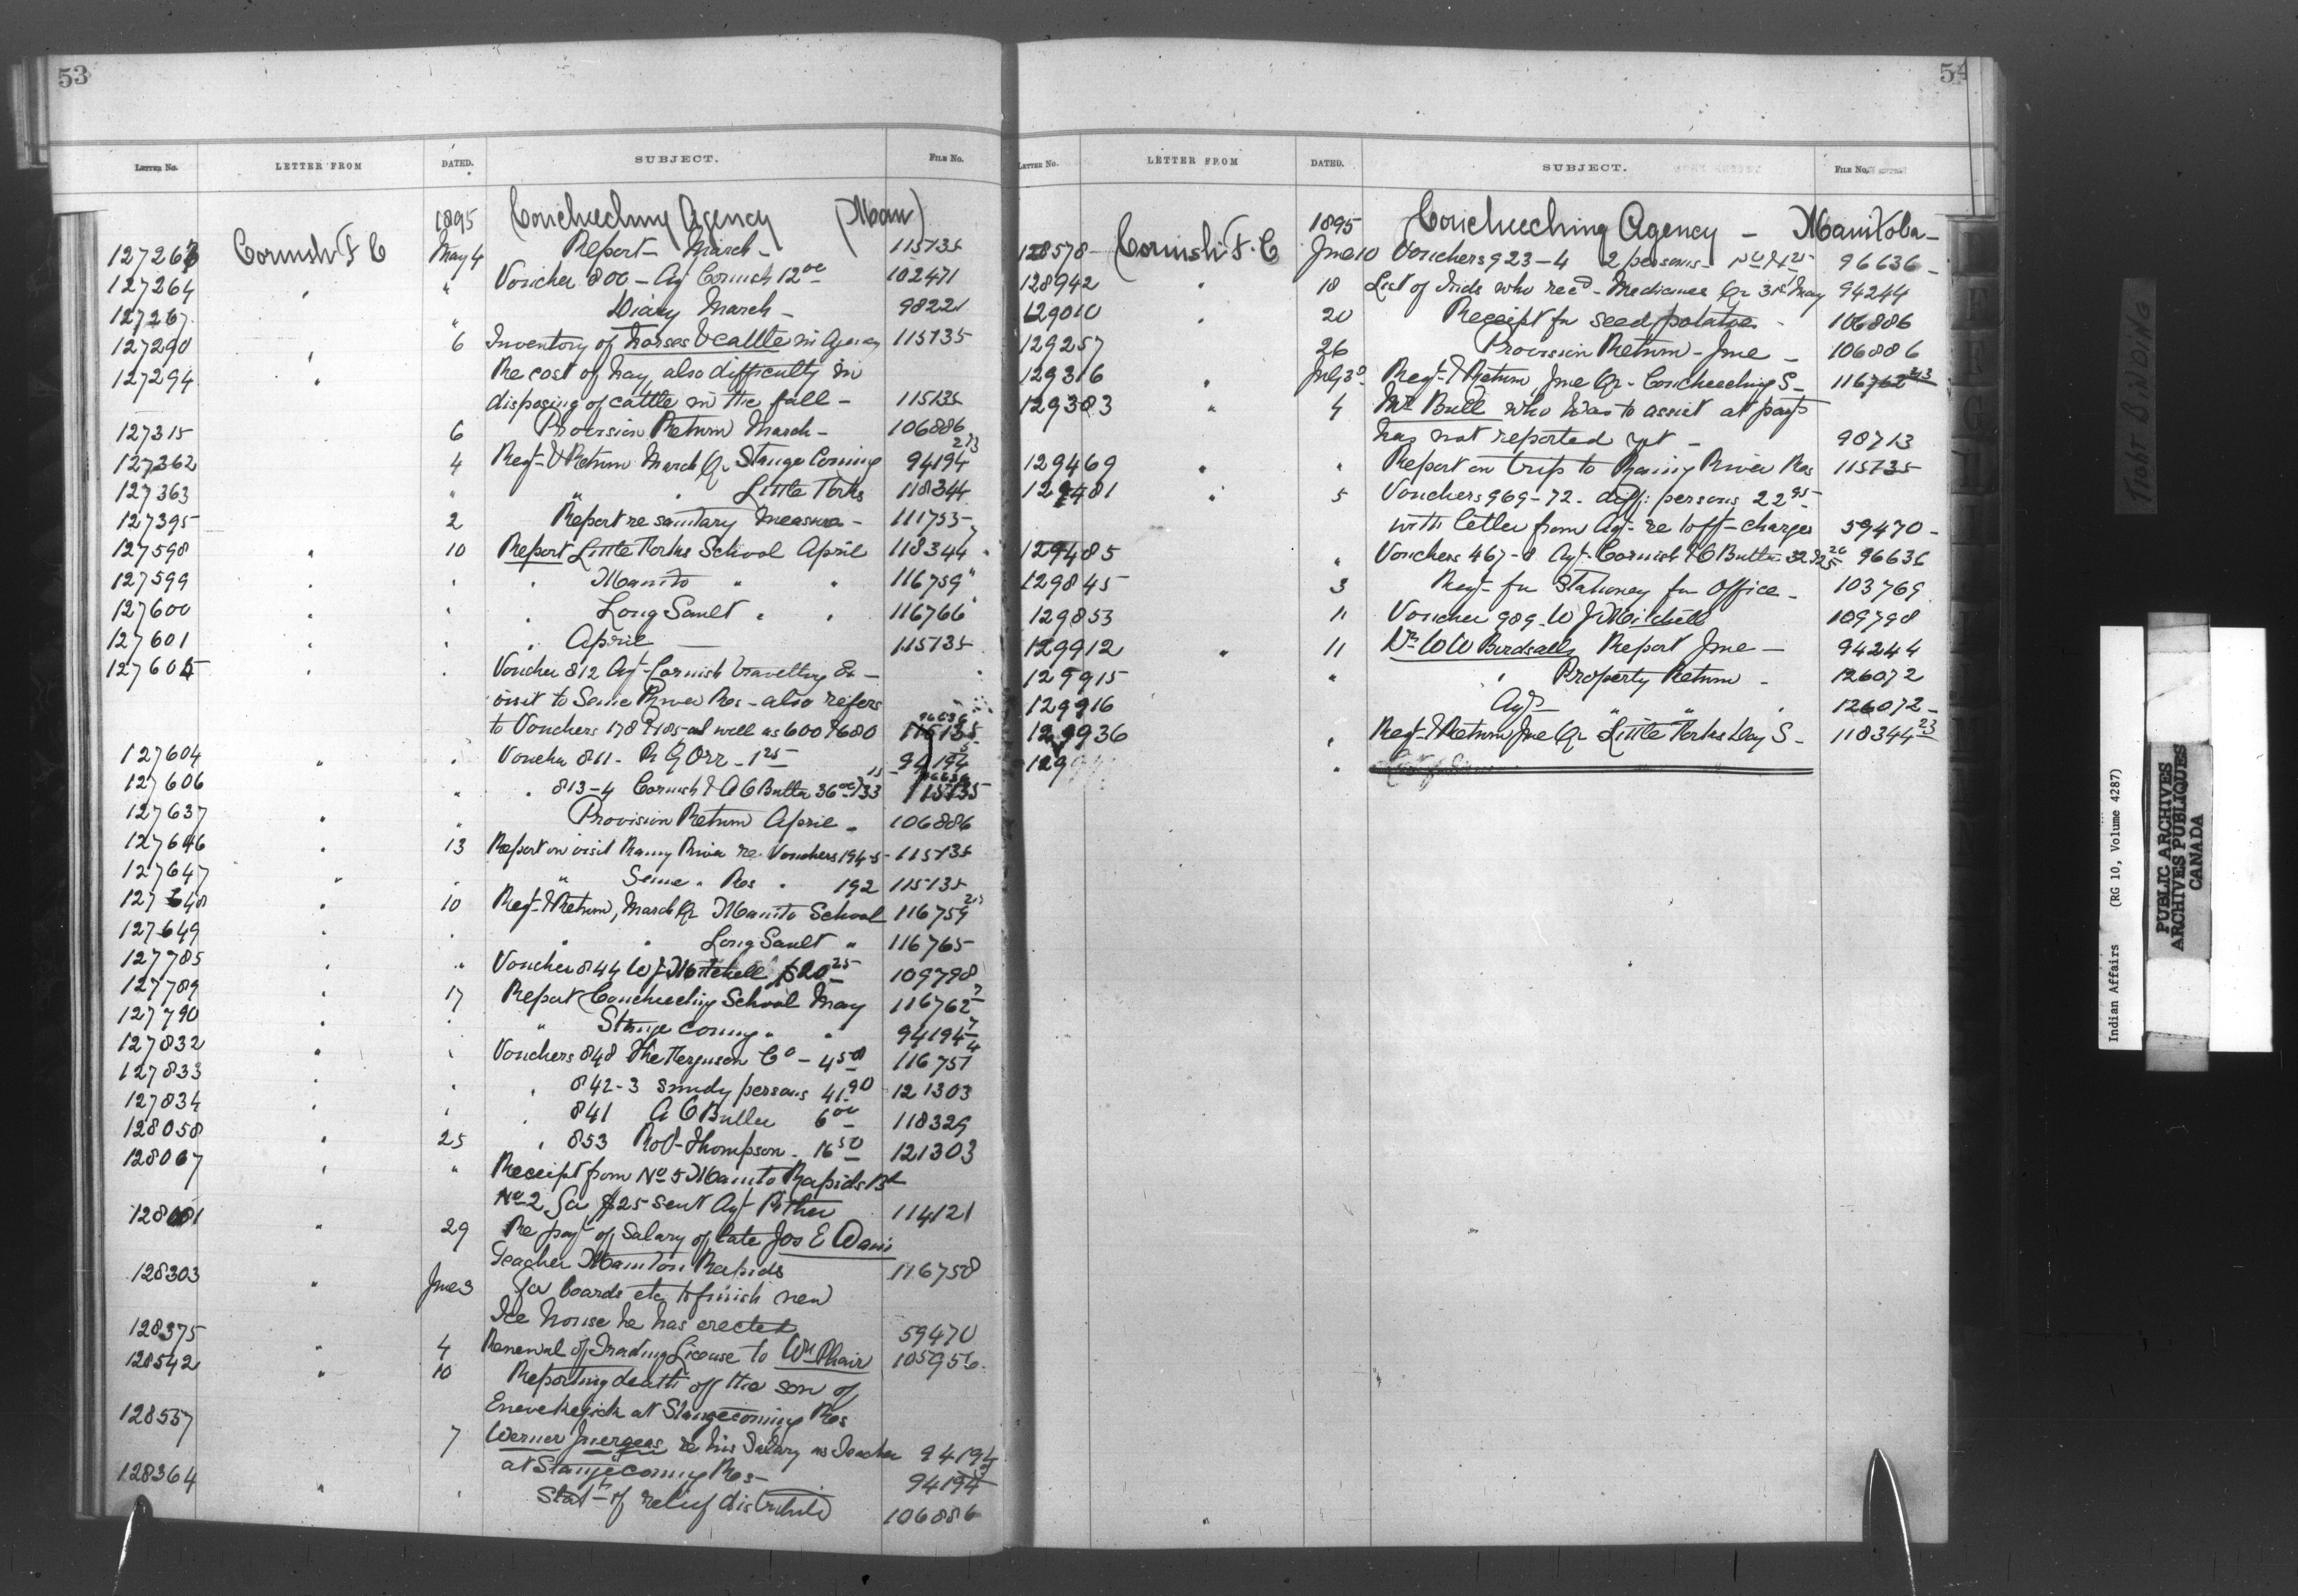 53
LETTER NO. LETTER FROM DATED. SUBJECT. FILE NO.
1895 Coucheeching Agency (Man)
127263 Cornish F C May 4 Report - March - 115135
127264 " " Voucher 800 - Agt Cornish 12 00 102471
127267 " Diary March - 98221
127290 " 6 Inventory of horses & cattle in Agency 115135
127294 " Re cost of hay, also difficulty in
disposing of cattle in the fall - 115135
127315 6 Provision Return March - 106886
127362 4 Reqt & Return March Qr Stangecoming 94194 213
127363 " " " Little Forks 118344
127395 2 Report re sanitary measures - 111755
127598 " 10 Report Little Forks School April 118344
127599 " " " Manito " " 116759
127600 " " " Long Sault " " 116766
127601 " " " April - 115135
127605 " " Voucher 812 Agt Cornish travelling &c -
visit to Seine River Res - also refers
to Vouchers 178 & 185 as well as 600 & 680 96636 115135
127604 " " Voucher 811 - R G Orr - 1 25 94194
127606 " " " 813-4 Cornish & A C Butter 36 00 & 33 15 96636 115135
127637 " " Provision Return April - 106886
127646 " 13 Report on visit Rainy River re Vouchers 194-5 - 115135
127647 " " " Seine " Res " 192 115135
127648 " 10 Reqt & Return, March Qr Manito School 116759 213
127649 " " " " Long Sault " 116765
127785 " " Voucher 844 W J Mitchell $20 25 109798
127789 " 17 Report Coucheeching School May 116762 7
127790 " " " Stangecoming " " 94194 7
127832 " " Vouchers 848 The Ferguson Co - 4 50 116757
127833 " " " 842-3 sundry persons 41.90 121303
127834 " " " 841 A C Butter 6 00 118329
128058 " 25 " 853 Robt Thompson - 16 50 121303
128067 " " Receipt from No 5 Manito Rapids Bd
No 2 for $25 sent Agt Pither 114121
128081 " 29 Re payt of Salary of late Jos E Davis
Teacher Manitou Rapids 116758
128303 " June 3 For boards etc to finish new
Ice house he has erected 59470
128375 " 4 Renewal of Trading License to Wm Phair 105956
128542 " 10 Reporting death of the son of
at Stangecoming Res 94194
128557 7 Werner re his Salary as Teacher
at Stangecoming Res - 94194
128364 " " Statt of relief distributed 106886
54
LETTER NO. LETTER FROM DATED. SUBJECT. FILE NO.
1895 Coucheeching Agency - Manitoba -
128578 Cornish F. C June 10 Vouchers 923-4 2 persons - 96636 -
128942 " 18 List of Inds who recd - Medicines Qr 31st May 94244
129010 " 20 Receipt for seed potatoes - 106886
129257 26 Provision Return - June - 106886
129316 " July 3 Reqt & Return, June Qr - Coucheeching S - 116762 213
129383 " 4 Mr Bull who was to assist at payts
has not reported yet - 98713
129469 " " Report on trip to Rainy River Res 115135
129481 " 5 Vouchers 969-72 - diff: persons 22 95
with letter from Agt - re toff - charges 59470 -
129485 " Vouchers 467-8 Agt Cornish & A C Butter 32 26 96636
129845 3 Reqt - for Stationery for Office - 103769
129853 11 Voucher 989 - W J Mitchell 109798
129912 " 11 Dr W W Birdsall Report June - 94244
129915 " " Property Return - 126072
129916 Agts " " " 126072 -
129936 " Reqt & Return June Qr Little Forks Day S - 118344 23
129
TIGHT BINDING
Indian Affairs (RG 10, Volume 4287)
PUBLIC ARCHIVES
ARCHIVES PUBLIQUES
CANADA